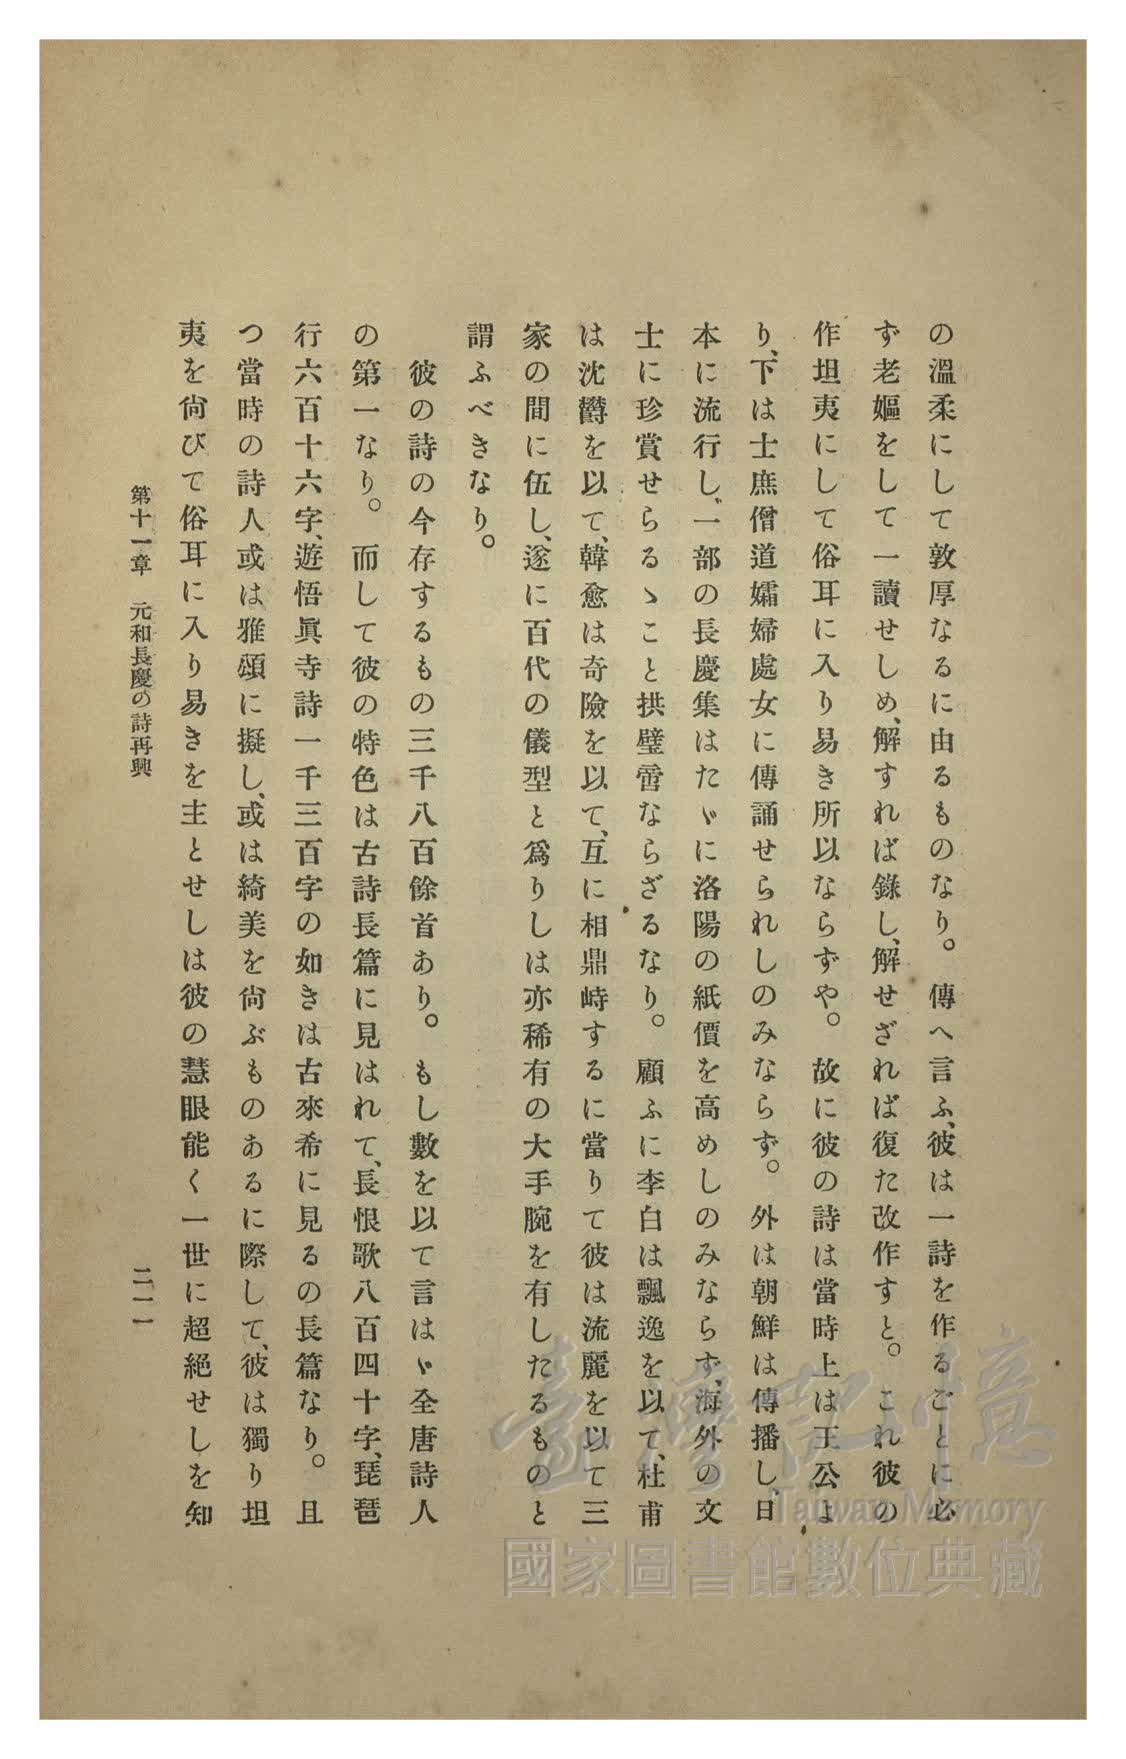 の溫柔にして敦厚なるに由るものなり。傳へ言ふ、彼は一詩を作るごとに必
ず老嫗をして一讀せしめ、解すれば錄し、解せざれば復た改作すと。これ彼の
作坦夷にして俗耳に入り易き所以ならずや。故に彼の詩は當時上は王公よ
り、下は士庶僧道孀婦處女に傳誦せられしのみならず。外は朝鮮は傳播し、日
本に流行し、一部の長慶集はたゞに洛陽の紙價を高めしのみならず、海外の文
士に珍賞せらるゝこと拱璧啻ならざるなり。顧ふに李白は飄逸を以て、杜甫
は沈欝を以て、韓愈は奇險を以て、互に相鼎峙するに當りて彼は流麗を以て三
家の間に伍し、遂に百代の儀型と爲りしは亦稀有の大手腕を有したるものと
謂ふべきなり。
彼の詩の今存するもの三千八百餘首あり。もし數を以て言はゞ全唐詩人
の第一なり。而して彼の特色は古詩長篇に見はれて、長恨歌八百四十字、琵琶
行六百十六字、遊悟眞寺詩一千三百字の如きは古來希に見るの長篇なり。且
つ當時の詩人或は雅頌に擬し、或は綺美を尙ぶものあるに際して、彼は獨り坦
夷を尙びて俗耳に入り易きを主とせしは彼の慧眼能く一世に超絕せしを知
第十一章 元和長慶の詩再興
二一一
臺灣記憶
Taiwan Memory
國家圖書館數位典藏